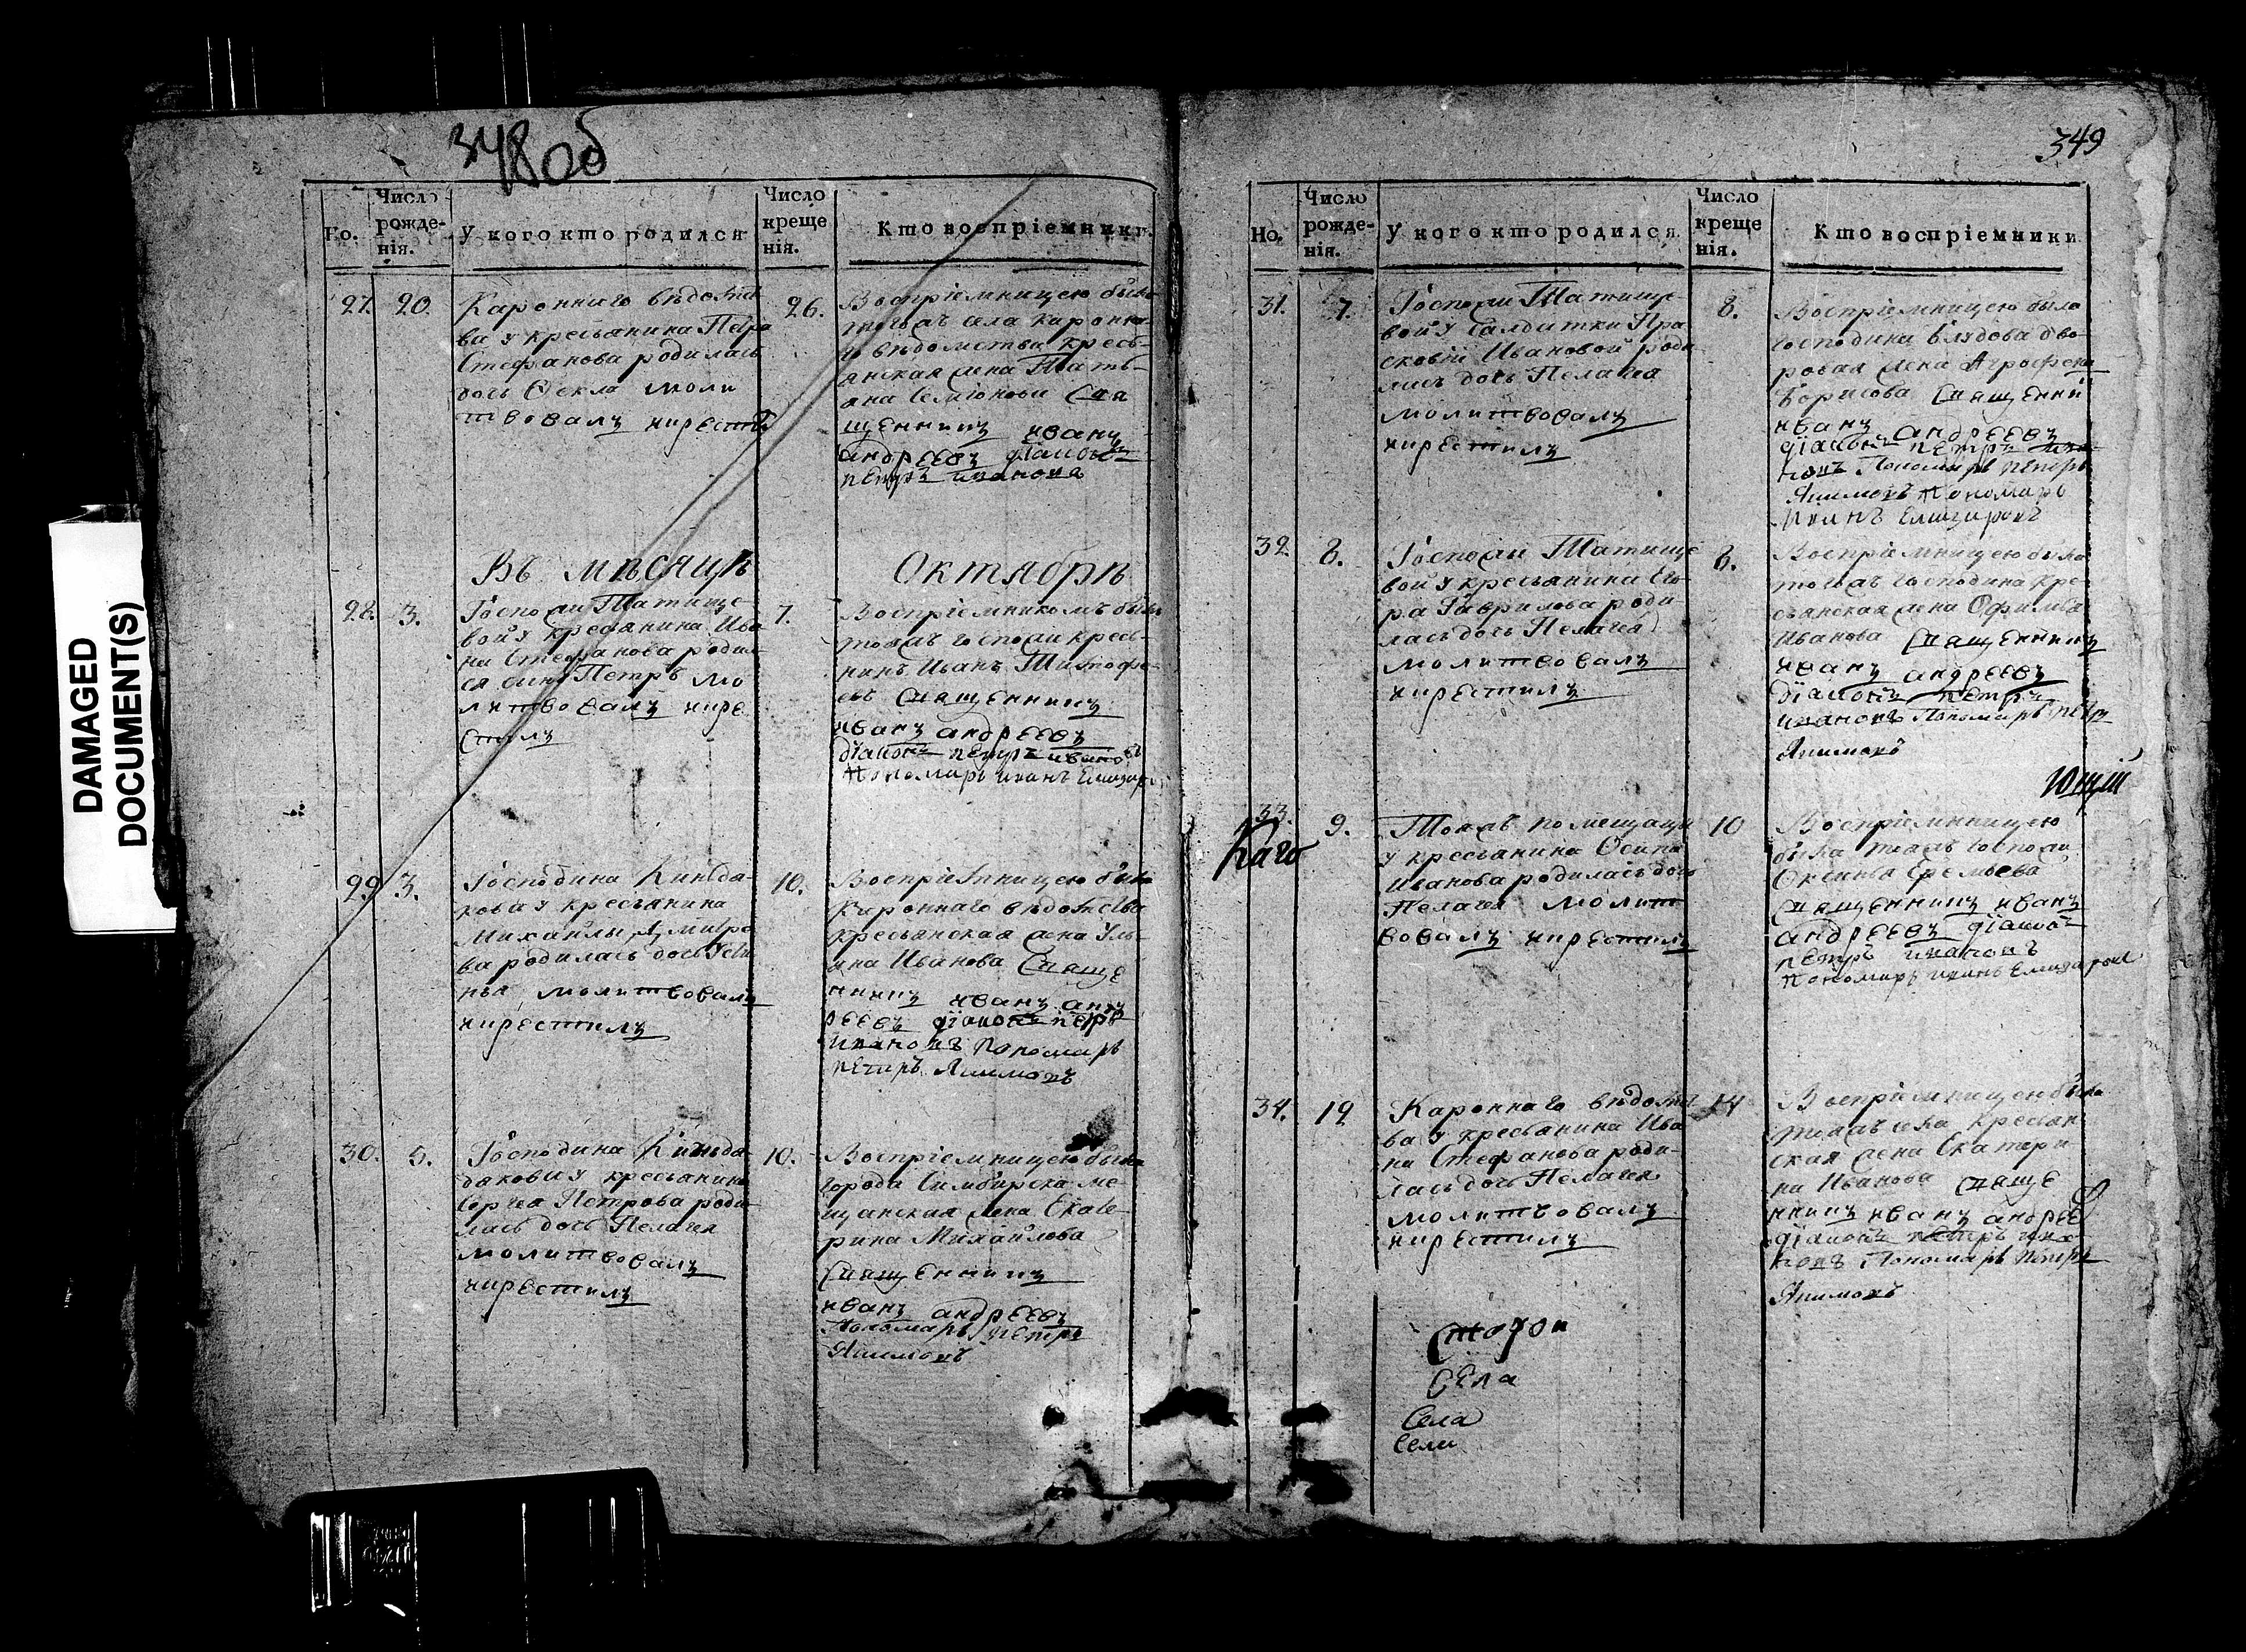 348 об
Но.
Число
рожде-
нія.
У кого кто родился
Число
креще
нія.
Кто воспріемники.
27.
20.
Кароннаго вѣдомст
ва у кресьянина Петра
Стефанова родилась
дочь Ѳекла моли
твовалъ икрестил
26.
Воспріемницею была
тогожъ села каронна
го вѣдомства кресь-
янская жена Тать-
яна Семіонова Свя
щенникъ иванъ
андреевъ діаконъ
петръ иванова
Въ мѣсяцѣ Октябрѣ
28.
3.
Госпожи Татище-
вой у кресьянина Ива
на Стефанова родил-
ся сынъ Петръ мо
литвовалъ икре
стилъ
7.
Воспріемникомъ былъ
тояжъ госпожи кресь-
нинъ Иванъ Тимофе-
евъ Священникъ
иванъ андреевъ
діаконъ петръ ивановъ
Пономарь иванъ Елизар
29
3.
Господина Кинда-
кова у кресьянина
Михайлы Дмитре
ва родилась дочь Усти
нья, молитвовалъ
икрестилъ
10.
Воспріемницею была
Кароннаго вѣдомства
кресьянская жена Уль-
яна Иванова Свяще
нникъ иванъ анд
реевъ діаконъ петръ
ивановъ Пономарь
петръ Якимовъ
30.
5.
Господина Кинда
дакова у кресьянина
Сергея Петрова роди
лась дочь Пелагея
молитвовалъ
икрестилъ
10.
Воспріемницею была
города Симбирска ме
щанская жена Екате-
рина Михайлова
Священникъ
иванъ андреевъ
Пономарь петръ
Якимовъ
349
Но.
Число
рожде-
нія.
У кого кто родился
Число
креще
нія.
Кто воспріемники
31.
7.
Госпожи Татище-
вой у Салдатки Пра
сковіи Ивановой роди
лась дочь Пелагея
молитвовалъ
икрестилъ
8.
Воспріемницею была
господина Блудова дво-
ровая жена Агрофена
Борисова Священни
иванъ андреевъ
діаконъ петръ ива
новъ Пономарь петръ
Якимовъ Пономарь
Иванъ Елизаровъ
32.
8.
Госпожи Татище
вой у кресьянина Его-
ра Гаврилова роди-
лась дочь Пелагея
молитвовалъ
икрестилъ
8.
Воспріемницею была
тогожъ господина кре-
сьянская жена Офимья
Иванова Священникъ
иванъ андреевъ
діаконъ петръ
ивановъ Пономарь петр
Якимовъ
ющій
33.
9.
Каго
Тояжъ помещицы
у кресьянина Осипа
Иванова родилась дочь
Пелагея молит
вовалъ икрестилъ
10
Воспріемницею
была тояжъ госпожи
Оксинья Еремеева
Священникъ иванъ
андреевъ діако
петръ ивановъ
Пономарь иванъ Елизаров
34.
12
Кароннаго вѣдомст
ва у кресьянина Ива
на Стефанова роди-
лась дочь Пелагея
молитвовалъ
икрестилъ
14
Воспріемницею была
тогожъ села кресьян
ская жена Екатери
на Иванова Свяще
нникъ иванъ андрее
діаконъ петръ ива
новъ Пономарь петръ
Якимовъ
Стогои
села
Села
Села
DAMAGED
DOCUMENT(S)